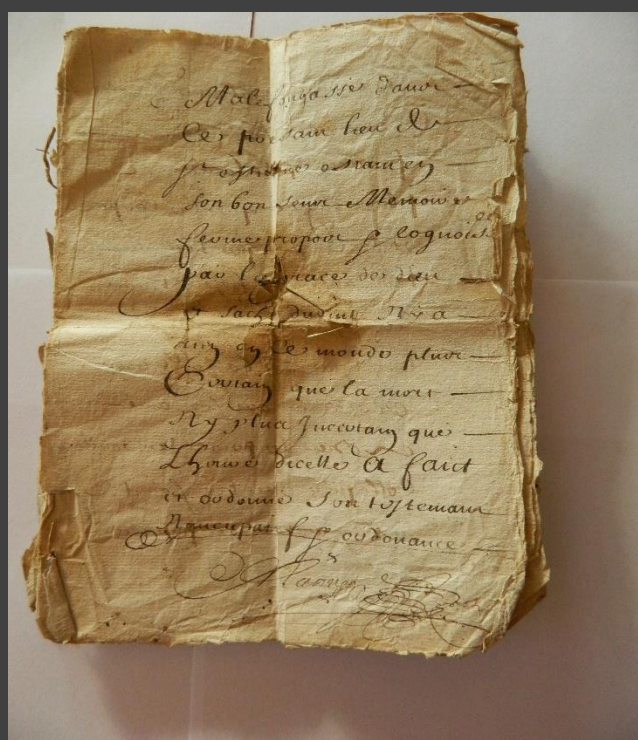 Malefougasse dance
Ce pntsant lieu de
estant en
son bon sens Memoire
ferme propoz & cognoice
par la grace de dieu
& sachant Ny a
rien en Ce monde plus
Certain que la mort
Ny plus Incertain que
Lheure dicelle A faict
et ordonne son testemant
Noncupatif & ordonance